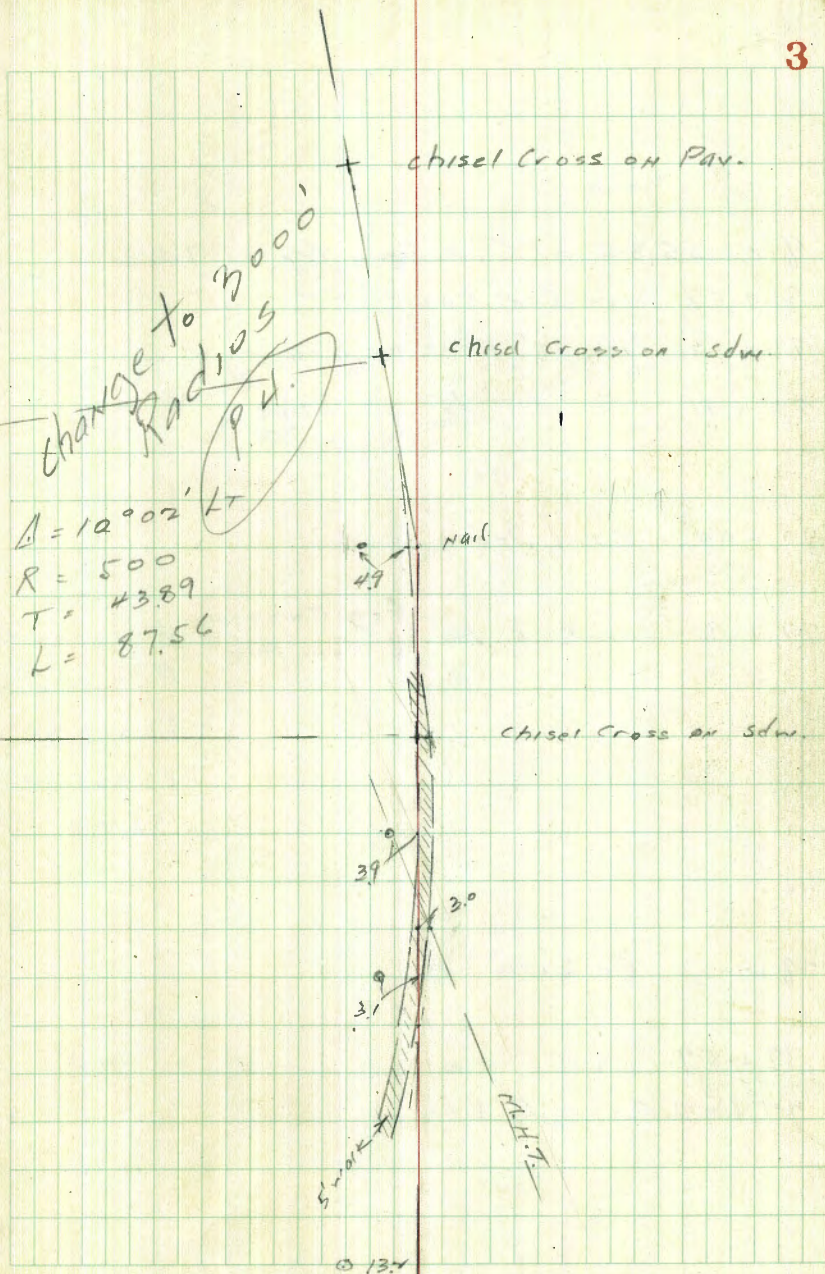 3
chisel Cross on Pav.
change to 3000'
Radios
chisel Cross on Sdw.
P.I.
Δ = 10°02' LT
R = 500
T = 43.89
L = 87.56
Nail
4.9
chisel Cross on Sdw.
3.9
3.0
3.1
M.H.T.
5' walk